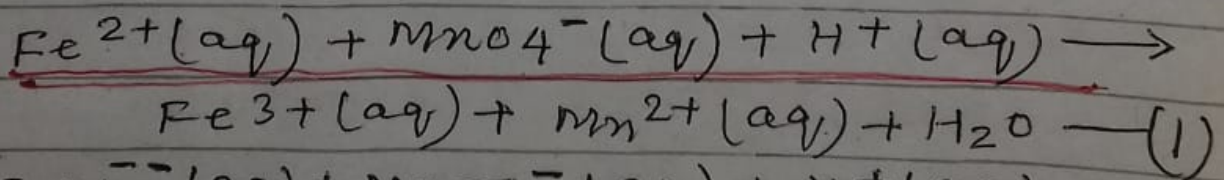 Fe²⁺(aq) + MnO4⁻(aq) + H+(aq) ⟶
Fe3+(aq) + Mn²⁺(aq) + H₂O —(1)